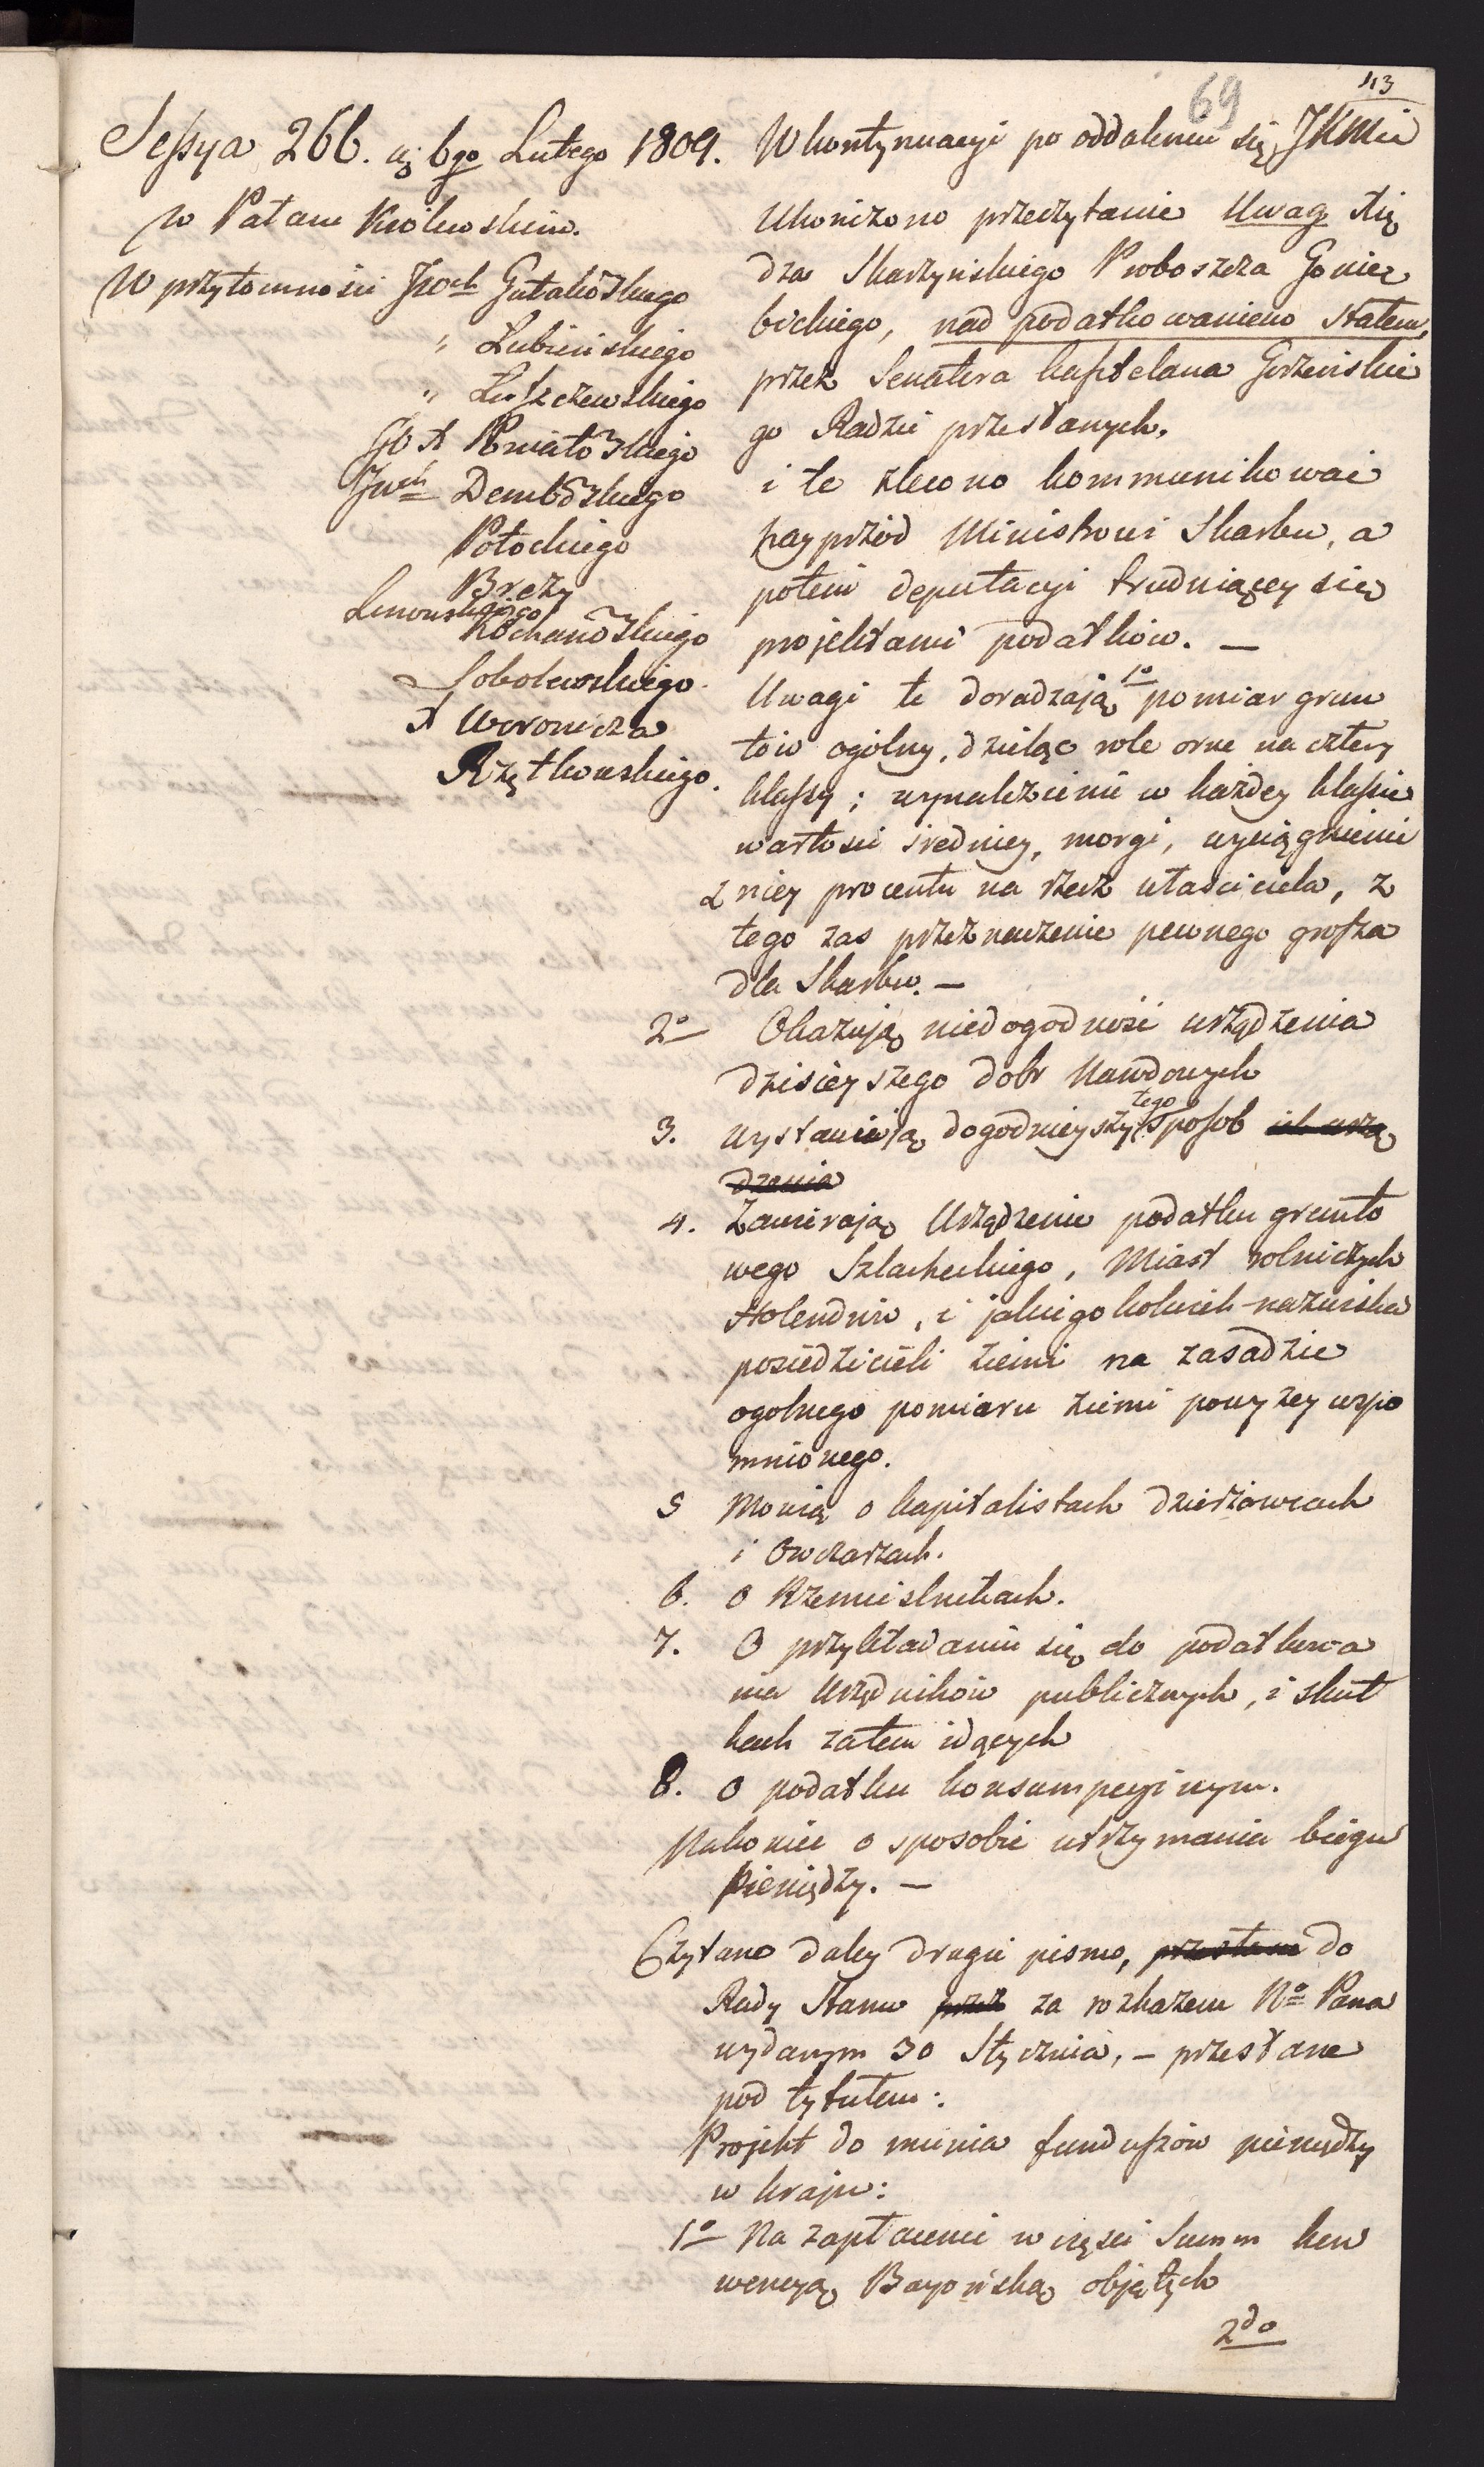 69
113
Seſsya 266. dj 6go Lutego 1809.
w Pałacu Królewskim.
W przytomności JWch Gutakowskiego
" Lubieńskiego
" Łuſzczewskiego
Poniatowskiego
JWch Dembowskiego
Potockiego
Brezy
Linowskiego
Kochanowskiego
Sobolewskiego.
X Woronicza
Rzętkowskiego.
W kontynuacyi po oddaleniu się JKMci
Ukończono przeczytanie Uwag Xię
dza Skarzyńskiego Proboszcza Goniąz
bickiego, nad podatkowaniem stałem,
przez Senatora Kasztelana Gorzeńskie
go Radzie przesłanych.
i te zlecono kommunikować
nayprzód Ministrowi Skarbu, a
potem deputacyi trudniącey się
projektami podatków. —
Uwagi te doradzają 1o pomiar grun
tów ogólny, dzieląc role orne na cztery
klaſsy; wynalezienie w każdey klaſsie
wartości średniey, morgi, wyciągnienie
z niey procentu na rzecz właściciela, z
tego zas przeznaczenie pewnego groſza
dla Skarbu. —
2o Okazują niedogodność urządzenia
dzisieyszego dobr Narodowych
3. wystawiają dogodnieyszy tego sposob ich urzą
dzenia
4. Zawierają Urządzenie podatku grunto
wego Szlacheckiego, Miast rolniczych
Holendrów, i jakiegokolwiek nazwiska
posiedzicieli ziemi na zasadzie
ogolnego pomiaru ziemi powyżey wspo
mnionego.
5 Mowią o kapitalistach dzierżawcach
i Owczarzach.
6. O Rzemieslnikach.
7. O przykładaniu się do podatkowa
nia Urzędników publicznych, i skut
kach zatem idących
8. O podatku konsumpcyjnym.
Nakoniec o sposobie utrzymania biegu
Pieniędzy. —
Czytano daley drugie pismo, przesłane do
Rady Stanu przez za rozkazem No Pana
wydanym 30 Stycznia, — przesłane
pod tytułem:
Projekt do mienia funduſzów pieniędzy
w kraju:
1o Na zapłacenie w częsci Summ kon
wencyą Bayońską objętych
2do